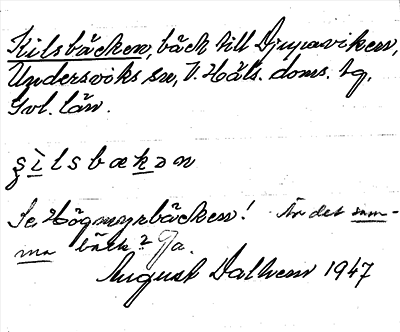 Kilsbäcken, bäck till Djupaviken,
Undersviks sn, V. Häls. doms. tg.
Gvl. län.
şìlsbækən
Se Högmyrbäcken! Är det sam-
ma bäck? Ja.
August Dalhem 1947